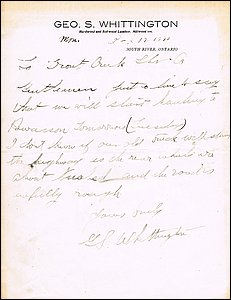 GEO. S. WHITTINGTON
Hardwood and Softwood Lumber, Millwood etc.
SOUTH RIVER, ONTARIO
To Trout Creek
Gentlemen Just a line to say
that we will start hauling to
Powassan tomorrow (Tuesday)
I don't know if our old truck will stand
the as the rear wheels are
about and the road is
awfully rough
Yours truly
GS Whittington